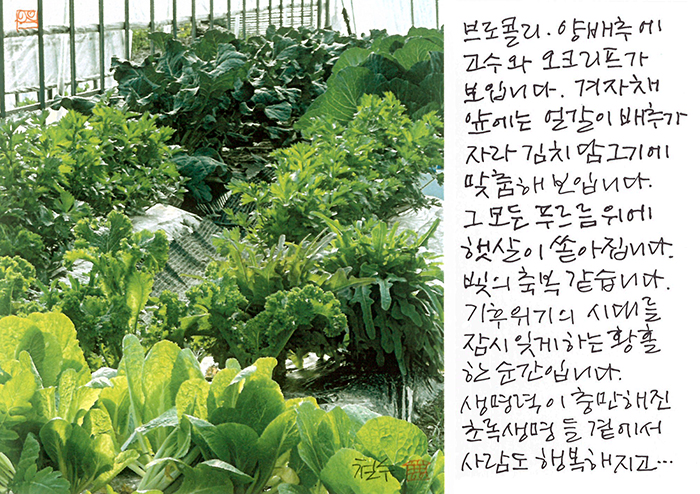 브로콜리. 양배추에
고수와 오크리프가
보입니다. 겨자채
앞에는 얼갈이 배추가
자라 김치 담그기에
맞춤해 보입니다.
그 모든 푸르름 위에
햇살이 쏟아집니다.
빛의 축복 같습니다.
기후위기의 시대를
잠시 잊게하는 황홀
한 순간입니다.
생명력이 충만해진
초록생명들 곁에서
사람도 행복해지고…
철수